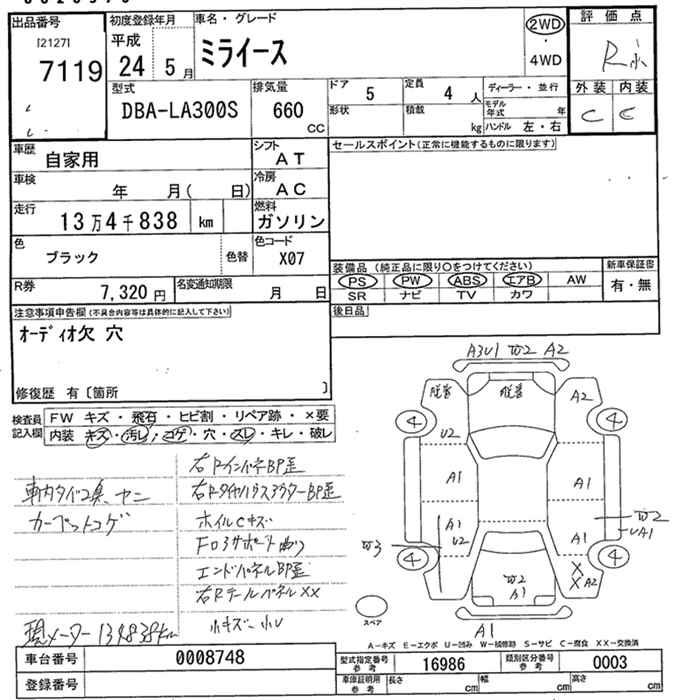 出品番号
[2127]
7119
初度登録年月
平成
24 5月
車名・グレード
ミライース
2WD
・
4WD
評価点
R
外装 内装
C C
型式
DBA-LA300S
排気量
660
CC
ドア 5
定員 4 人
形状
積載 kg
ディーラー・並行
モデル年式 年
ハンドル 左・右
車歴 自家用
シフト AT
車検 年 月( 日)
冷房 AC
走行 13万4千838 km
燃料 ガソリン
色 ブラック
色替
色コード X07
R券 7,320円
名変通知期限 月 日
セールスポイント(正常に機能するものに限ります)
装備品(純正品に限り○をつけてください)
PS PW ABS エアB AW
SR ナビ TV カワ
新車保証書
有・無
後日品
注意事項申告欄(不具合内容等は具体的に記入して下さい)
オーディオ欠 穴
修復歴 有〔箇所 〕
検査員記入欄
FW キズ・飛石・ヒビ割・リペア跡・×要
内装 キズ・汚レ・コゲ・穴・スレ・キレ・破レ
右RインパネBP歪
車内タバコ臭 ヤニ
カーペットコゲ
ホイルCキズ
エンドパネルBP歪
右Rテールパネル XX
小キズ 小U
現メーター 134838km
A3U1 W2 A2
脱着 脱着 A2
4 4
U2
A1 A1
A1 U2
W3
A1
W2
UA1
4 4
W2
A1
X X A2
A1
スペア
A-キズ E-エクボ U-凹み W-補修跡 S-サビ C-腐食 XX-交換済
車台番号 0008748
型式指定番号参考 16986
類別区分番号参考 0003
登録番号
車庫証明用参考 長さ cm 幅 cm 高さ cm